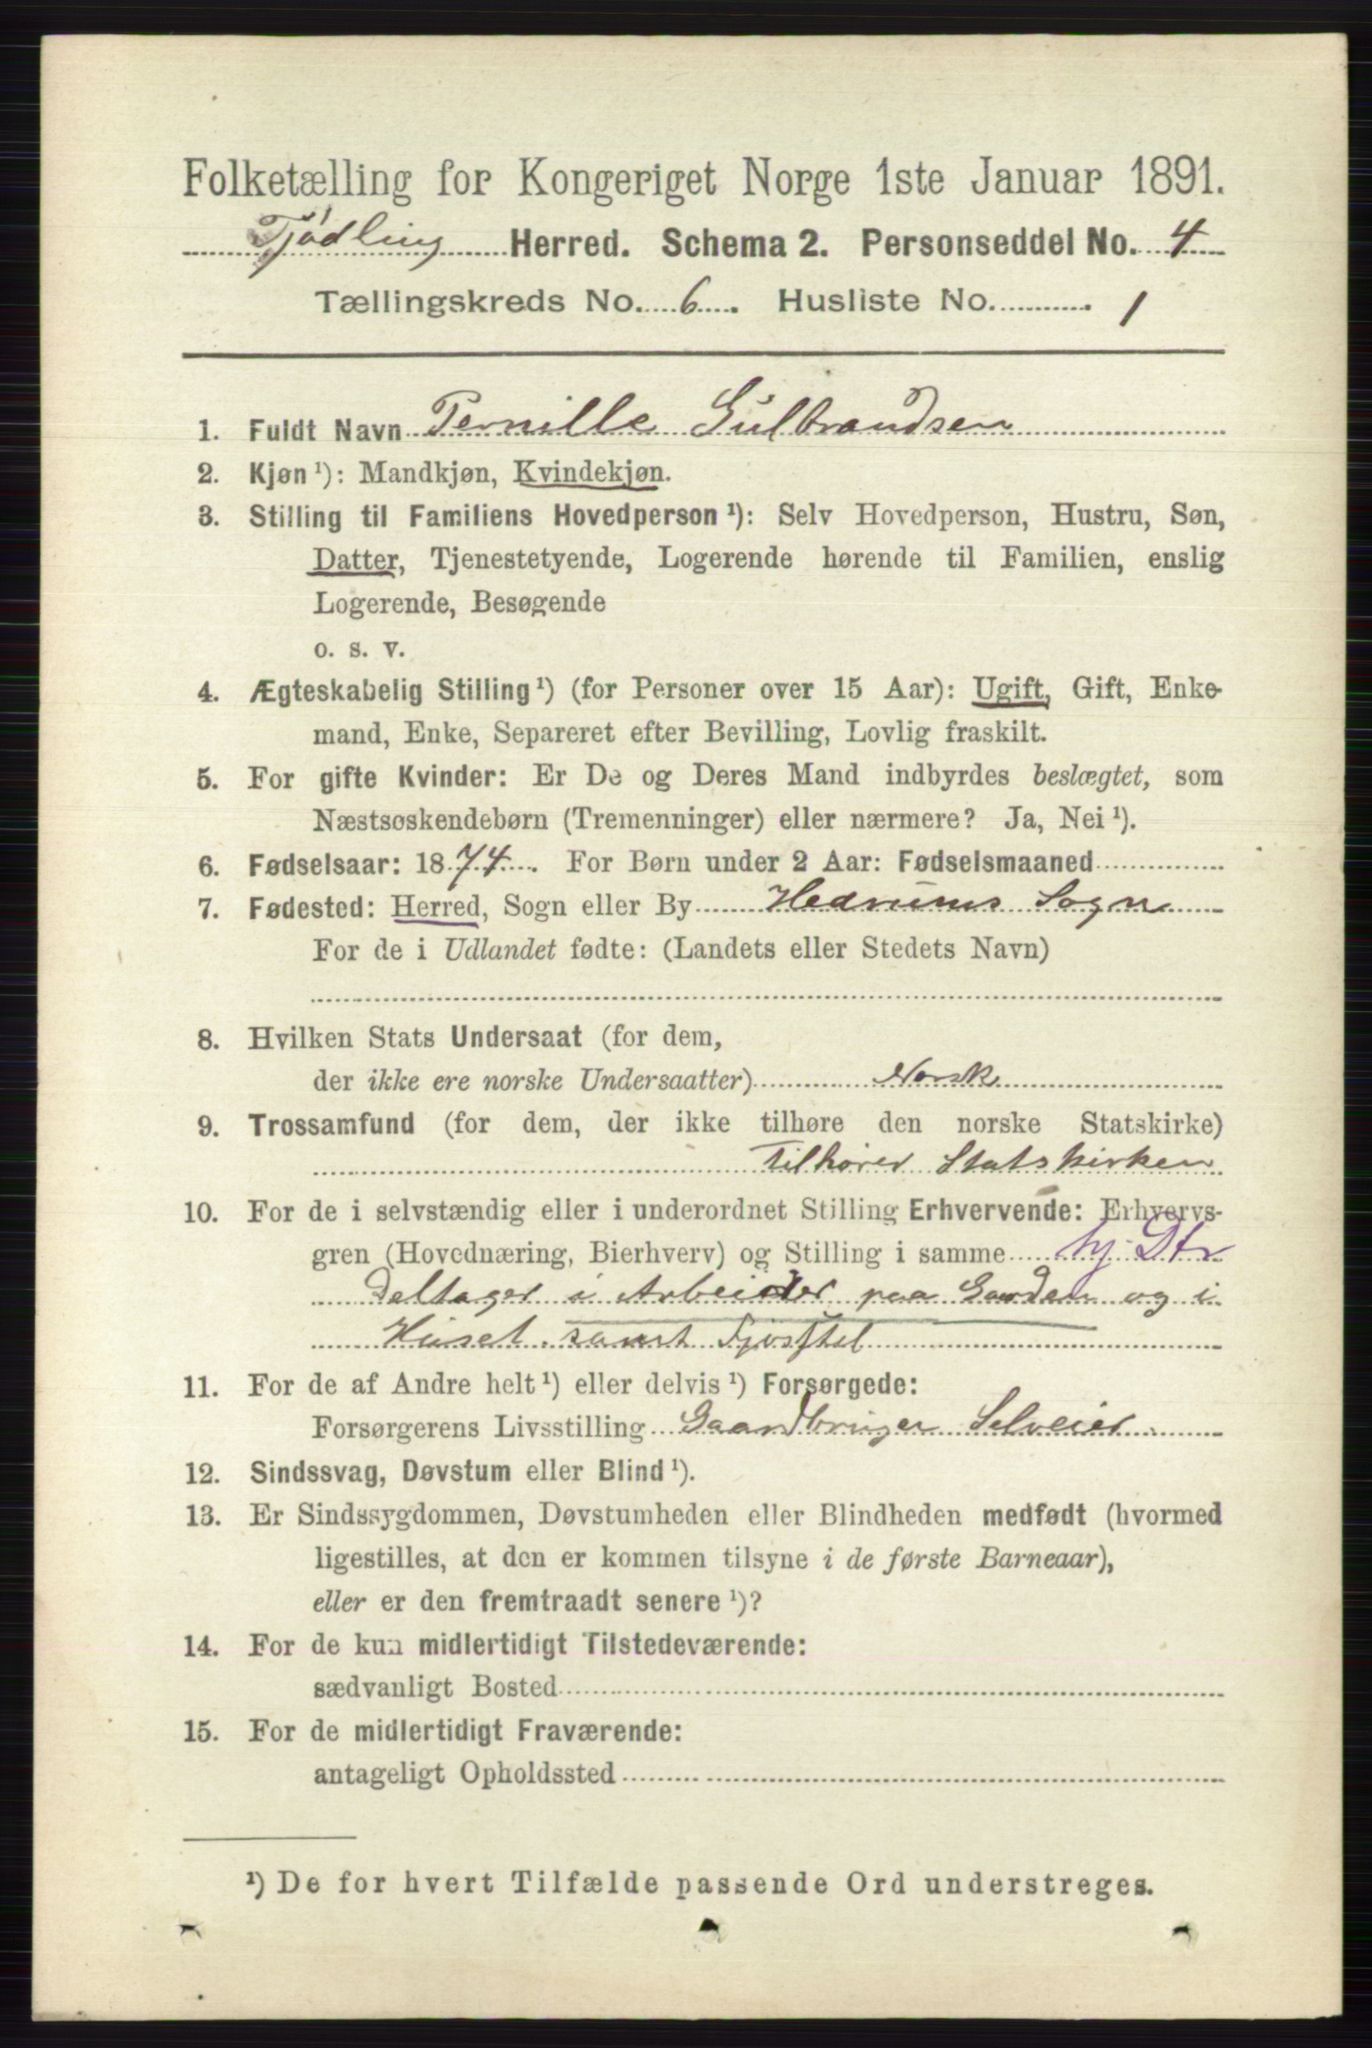 Folketælling for Kongeriget Norge 1ste Januar 1891.
Tjødling Herred. Schema 2. Personseddel No. 4
Tællingskreds No. 6. Husliste No. 1
1. Fuldt Navn Pernille Gulbrandsen
2. Kjøn ¹): Mandkjøn, Kvindekjøn.
3. Stilling til Familiens Hovedperson ¹): Selv Hovedperson, Hustru, Søn,
Datter, Tjenestetyende, Logerende hørende til Familien, enslig
Logerende, Besøgende
o. s. v.
4. Ægteskabelig Stilling ¹) (for Personer over 15 Aar): Ugift, Gift, Enke-
mand, Enke, Separeret efter Bevilling, Lovlig fraskilt.
5. For gifte Kvinder: Er De og Deres Mand indbyrdes beslægtet, som
Næstsøskendebørn (Tremenninger) eller nærmere? Ja, Nei ¹).
6. Fødselsaar: 1874. For Børn under 2 Aar: Fødselsmaaned
7. Fødested: Herred, Sogn eller By Hedrums Sogn
For de i Udlandet fødte: (Landets eller Stedets Navn)
8. Hvilken Stats Undersaat (for dem,
der ikke ere norske Undersaatter) Norsk
9. Trossamfund (for dem, der ikke tilhøre den norske Statskirke)
Tilhører Statskirken
10. For de i selvstændig eller i underordnet Stilling Erhvervende: Erhvervs-
gren (Hovednæring, Bierhverv) og Stilling i samme hj. Dtr
Deltager i Arbeider paa Gaarden og i
Huset samt Fjøsstel
11. For de af Andre helt ¹) eller delvis ¹) Forsørgede:
Forsørgerens Livsstilling Gaardbruger Selveier
12. Sindssvag, Døvstum eller Blind ¹).
13. Er Sindssygdommen, Døvstumheden eller Blindheden medfødt (hvormed
ligestilles, at den er kommen tilsyne i de første Barneaar),
eller er den fremtraadt senere ¹)?
14. For de kun midlertidigt Tilstedeværende:
sædvanligt Bosted
15. For de midlertidigt Fraværende:
antageligt Opholdssted
¹) De for hvert Tilfælde passende Ord understreges.